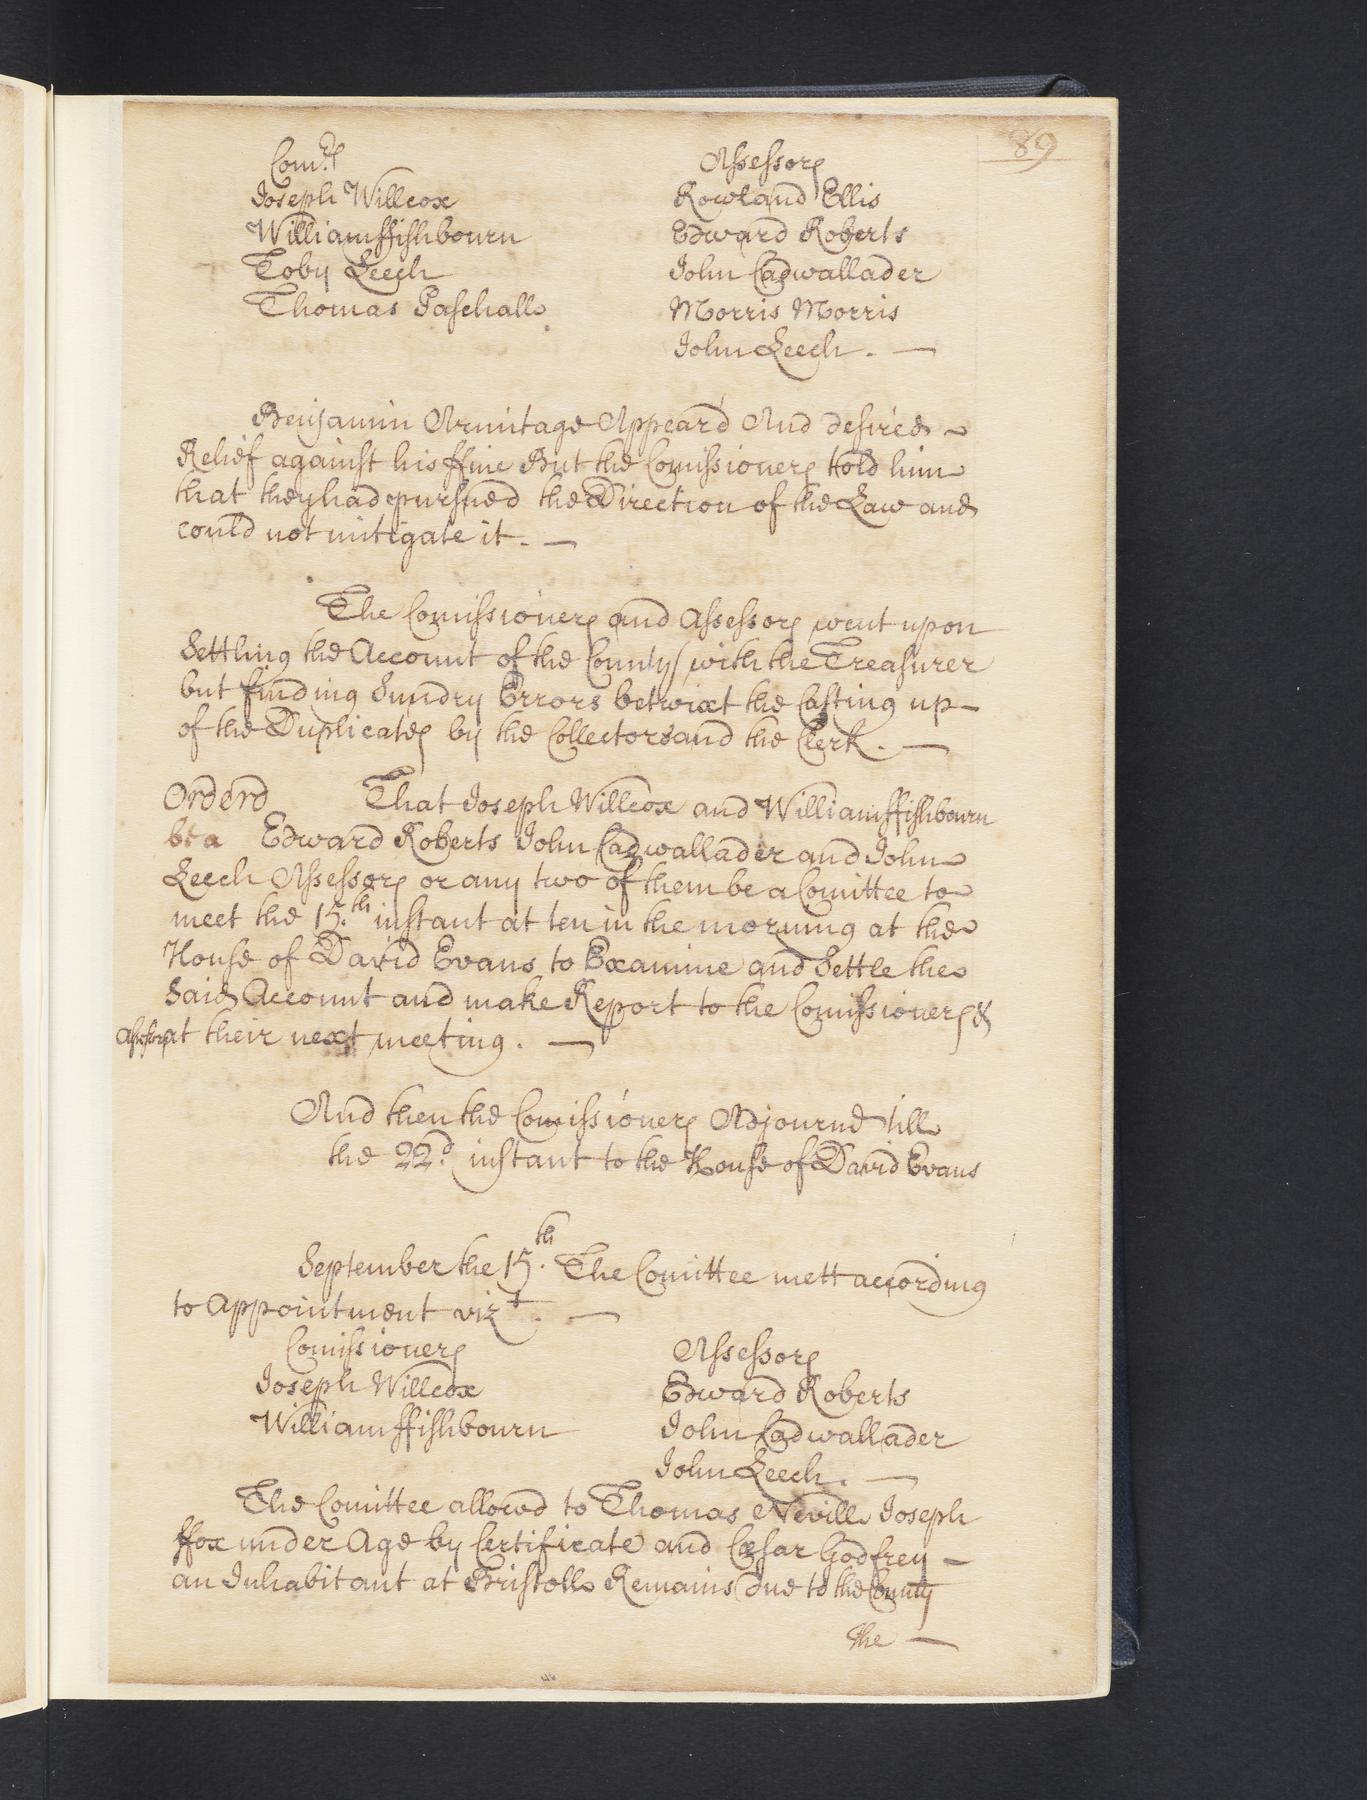 89
Com.rs
Assessors
Joseph Willcox
Rowland Ellis
William ffishbourn
Edward Roberts
Toby Leech
John Cadwallader
Thomas Paschall
Morris Morris
John Leech. —
Benjamin Armitage Appear'd And desired
Relief against his ffine But the Comissioners told him
that they had pursued the Direction of the Law and
could not mitigate it. —
The Comissioners and Assessors went upon
Settling the Account of the County with the Treasurer
but finding Sundry Errors betwixt the Casting up
of the Duplicates by the Collectors and the Clerk. —
Orderd That Joseph Willcox and William ffishbourn
be a Edward Roberts John Cadwallader and John
Leech Assessors or any two of them be a Comittee to
meet the 15.th instant at ten in the morning at the
House of David Evans to Examine and Settle the
Said Account and make Report to the Comissioners &
Assessors at their next meeting. —
And then the Comissioners Adjournd till
the 22.d instant to the House of David Evans
September the 15.th The Comittee mett according
to Appointment vizt. —
Comissioners
Assessors
Joseph Willcox
Edward Roberts
William ffishbourn
John Cadwallader
John Leech. —
The Comittee allowd to Thomas Nevill Joseph
ffox under Age by Certificate and Cæsar Godfrey —
an Inhabitant at Bristoll Remains due to the County
The —